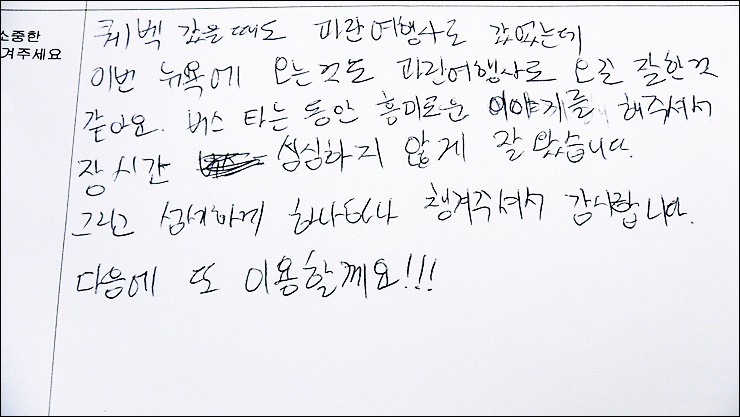 소중한
겨주세요
퀘벡 갔을때도 파란여행사로 갔었는데
이번 뉴욕에 오는것도 파란여행사로 오길 잘한것
같아요. 버스 타는 동안 흥미로운 이야기를 해주셔서
장시간 심심하지 않게 잘 왔습니다.
그리고 섬세하게 하나하나 챙겨주셔서 감사합니다.
다음에 또 이용할께요!!!